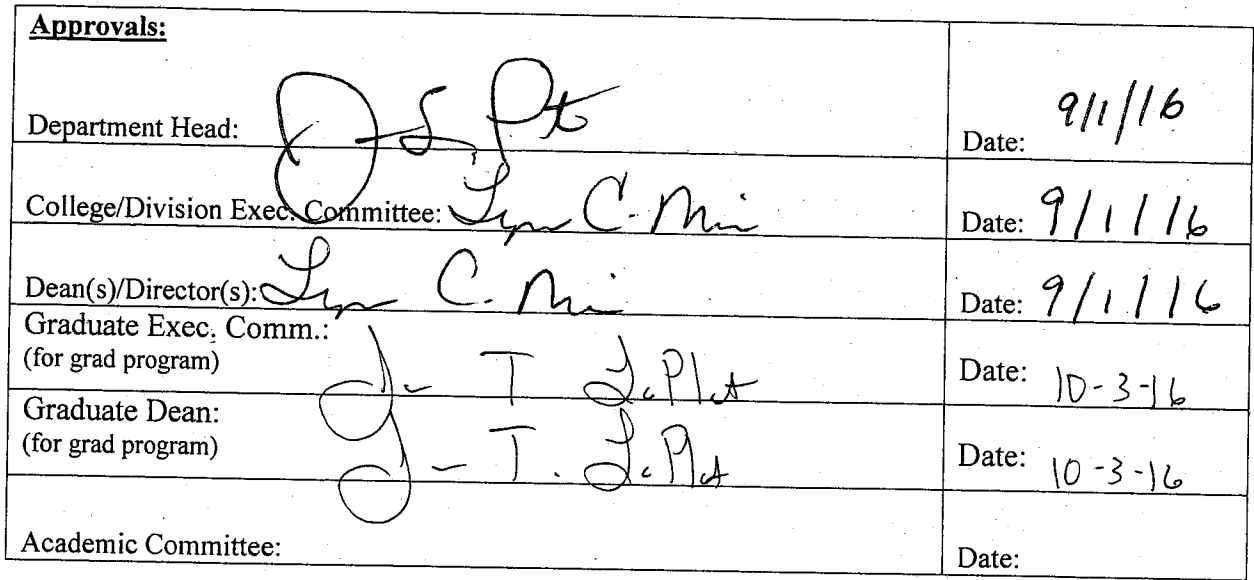 Approvals:
Department Head: Date: 9/1/16
College/Division Exec. Committee: C. Date: 9/1/16
Dean(s)/Director(s): C. Date: 9/1/16
Graduate Exec. Comm.:
(for grad program) J- T. Date: 10-3-16
Graduate Dean:
(for grad program) J- T. Date: 10-3-16
Academic Committee: Date: